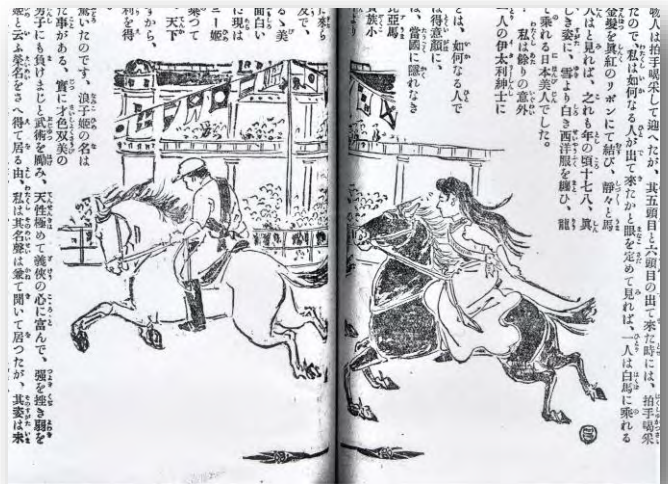 人は拍手喝采して迎へたが、其五頭目と六頭目の出て來た時には、拍手喝采
たので、私は如何なる人が出て來たかと眼を定めて見れば、一人は白馬に乘れる
金髮を眞紅のリボンにて結び、靜々と馬
人はと見れば、之れも年の頃十七八、眞
しき姿に、雪より白き西洋服を纒ひ、龍
と乘れる日本美人でした。
私は餘りの意外
一人の伊太利紳士に
とは、如何なる人で
は得意顏に、
は、當國に隱れなき
貴族小
比亞馬
た來ら
友で、
るゝ美
面白い
に現は
ニー姫
乘つて
天下
すから
利を得
驚いたのです。浪子姫の名は
た事がある、實に才色双美の
男子にも負けまじと武術を勵み、天性極めて義俠の心に富んで、强を挫き弱を
姫と云ふ榮名をさへ得て居る由、私は其名譽は兼て聞いて居つたが、其姿は未